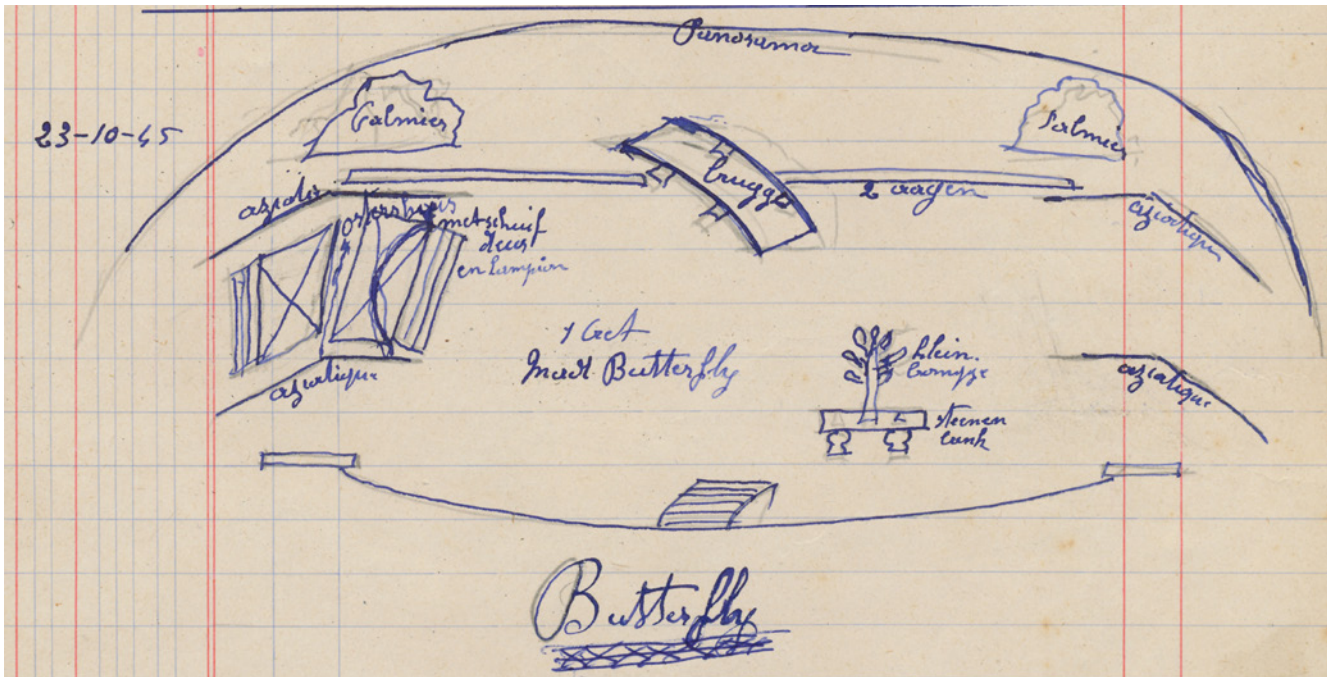 Panorama
23-10-45
Palmier
Palmier
brugge
2 wagen
aziatiq
aziatique
met schuif
deur
en Lampion
1 Act
Mad. Butterfly
klein.
steenen
bank
aziatique
aziatique
Butterfly